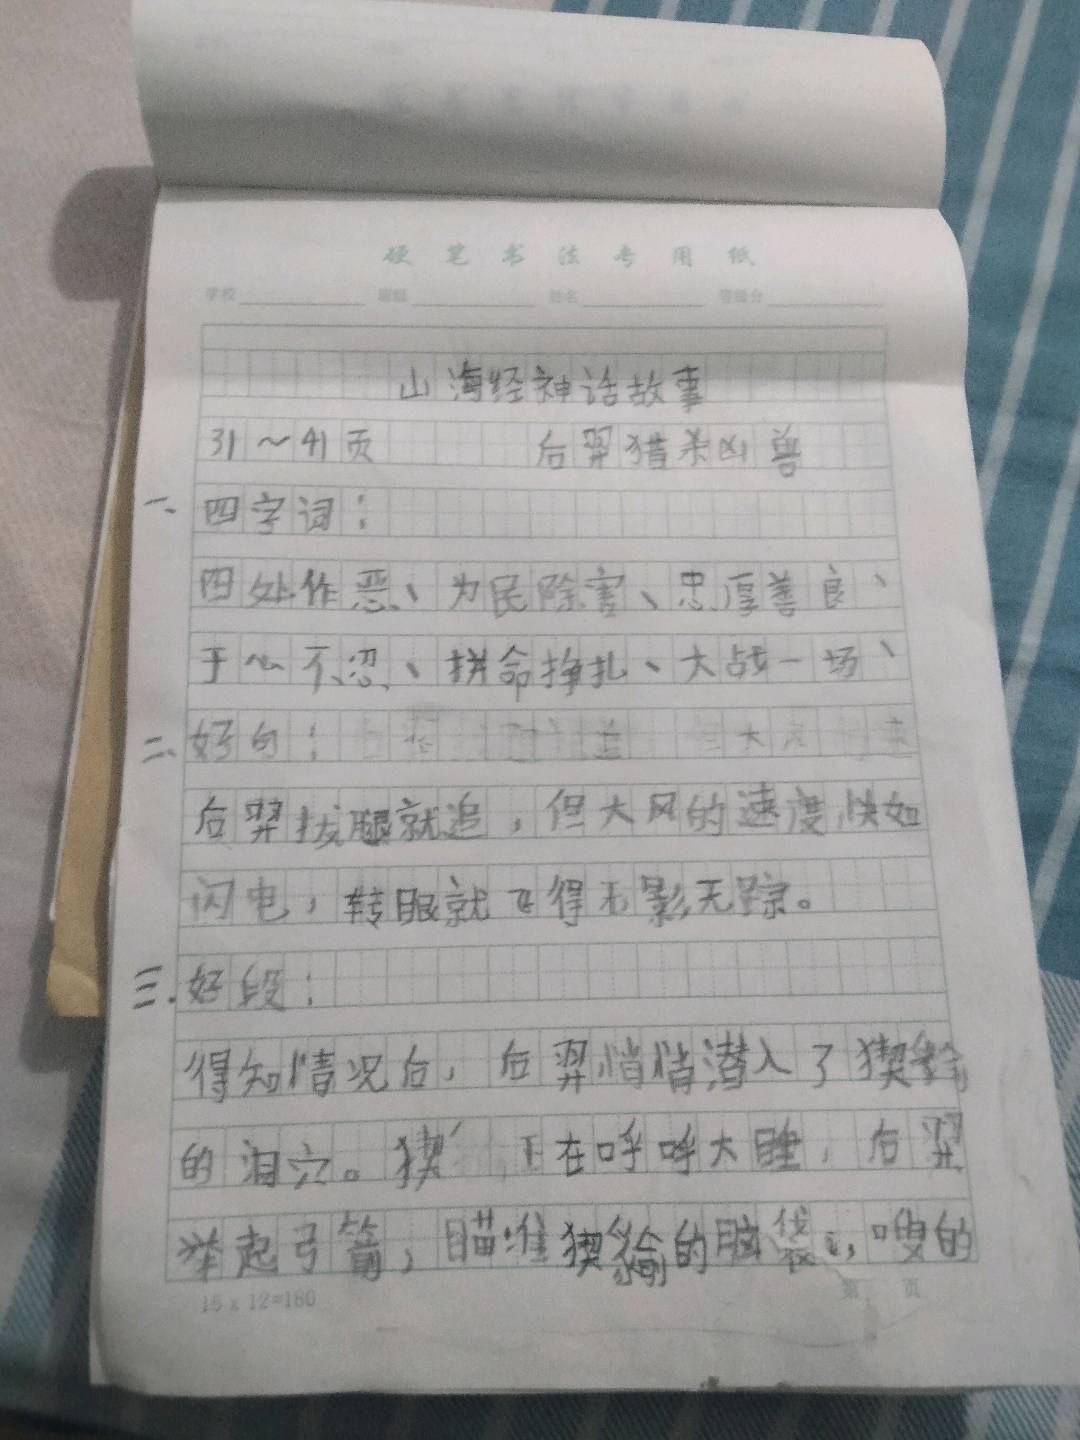 硬笔书法专用纸
学校 班级 姓名 等级分
山海经神话故事
31～41页 后羿猎杀凶兽
一、四字词：
四处作恶、为民除害、忠厚善良、
于心不忍、拼命挣扎、大战一场、
二、好句：
后羿拔腿就追，但大风的速度快如
闪电，转眼就飞得无影无踪。
三.好段：
得知情况后，后羿悄悄潜入了猰貐
的洞穴。猰 正在呼呼大睡，后羿
举起弓箭，瞄准猰貐的脑袋，嗖的
15x12=180 第 页